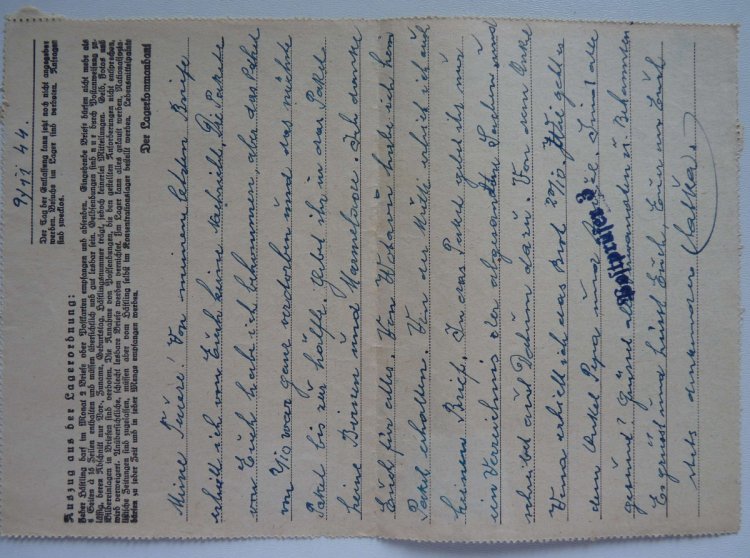 9/12 44.
Der Tag der Entlassung kann jetzt noch nicht angegeben
werden. Besuche im Lager sind verboten. Anfragen
sind zwecklos.
Auszug aus der Lagerordnung:
Jeder Häftling darf im Monat 2 Briefe oder Postkarten empfangen und absenden. Eingehende Briefe dürfen nicht mehr als
4 Seiten à 15 Zeilen enthalten und müssen übersichtlich und gut lesbar sein. Geldsendungen sind nur durch Postanweisung zu-
lässig, deren Abschnitt nur Vor-, Zuname, Geburtstag, Häftlingsnummer trägt, jedoch keinerlei Mitteilungen. Geld, Fotos und
Bildereinlagen in Briefen sind verboten. Die Annahme von Postsendungen, die den gestellten Anforderungen nicht entsprechen,
wird verweigert. Unübersichtliche, schlecht lesbare Briefe werden vernichtet. Im Lager kann alles gekauft werden. Nationalsozia-
listische Zeitungen sind zugelassen, müssen aber vom Häftling selbst im Konzentrationslager bestellt werden. Lebensmittelpakete
dürfen zu jeder Zeit und in jeder Menge empfangen werden.
Der Lagerkommandant
Meine Teuere! Von meinem letzten Briefe
erhielt ich von Euch keine Nachricht. Die Pakete
von Euch habe ich bekommen, aber das Paket
von war ganz verdorben und das nächste
Paket bis zur hälfte. Gibt ihr in das Paket
keine Birnen und Marmelade. Ich danke
Euch für alles. Von habe ich kein
Paket erhalten. Von der Mitzi erhielt ich auch
keinen Brief. In das Paket gebet ihr nur
ein Verzeichnis der abgesandten Sachen und
schreibet auch Datum dazu. Von dem Onkel
Vona erhielt ich das Brot 20/10. Wie geht es
dem Onkel Pepa und Sind alle
gesund? Grüsst alle u. Bekannten
Es grüsst und küsst Euch, Euer nur Euch
stets dankbarer Vaťka.
Postprüfer 3